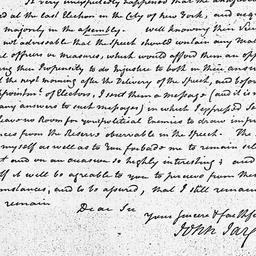 it very unexpectedly happened that the
at the last Election in the City of New York, and
majority in the assembly. well knowing their
not adviseable that the Speech should contain any
officers or measures, which would afford them an
their Propensity to do Injustice to both in their
the next morning after the Delivery of the Speech, and before
of Electors, I sent them a message (and it is
any answers to such messages) in which I expressed
leave no Room for your political Enemies to draw
from the Reserve observable in the Speech. The
myself as well as to You forbade me to remain
and on an occasion so highly interesting; and
it will be agreeable to you to perceive from these
and to be assured, that I still remain
remain
Dear Sir
your sincere & faithful
John Jay